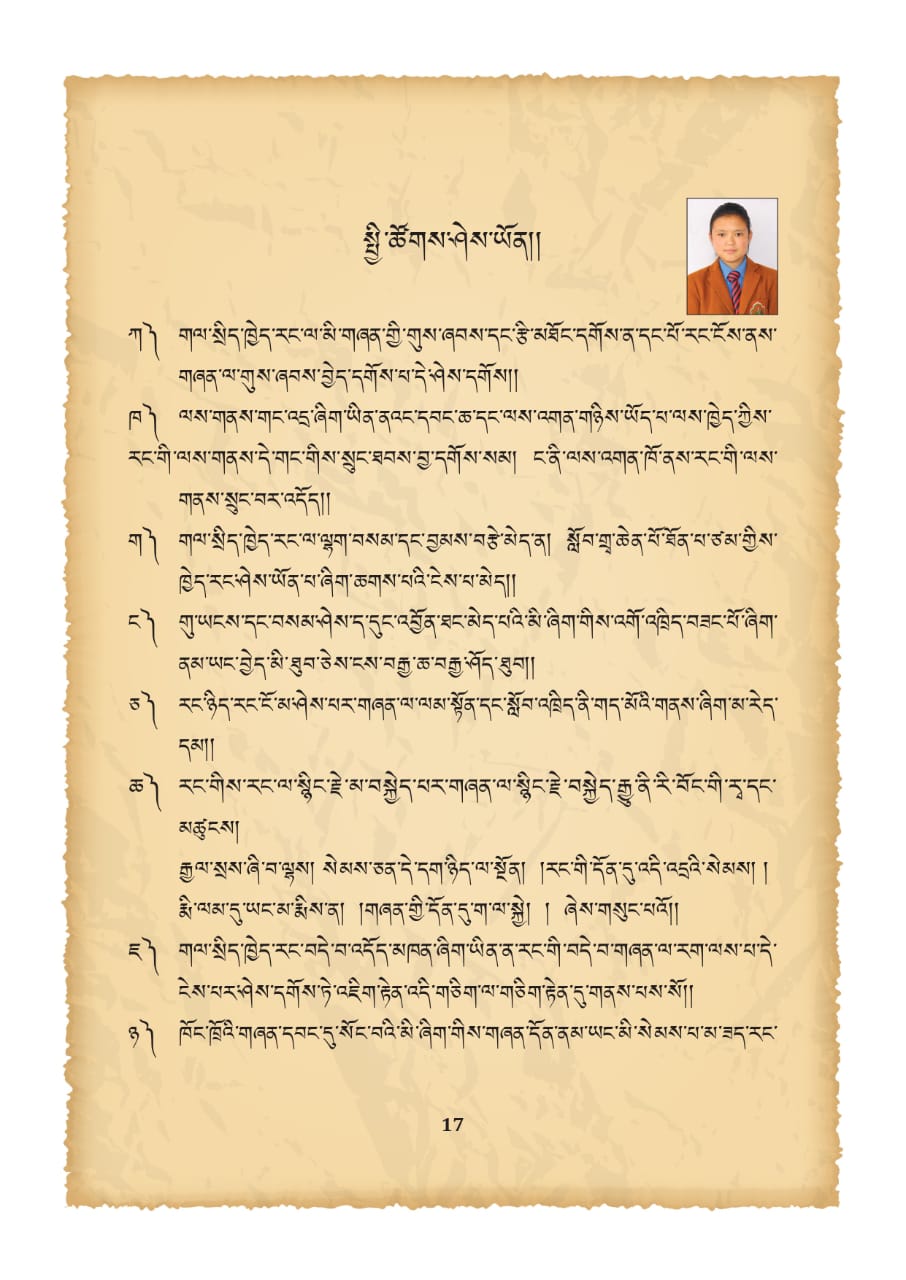 སྤྱི་ཚོགས་ཤེས་ཡོན།།
ཀ༽ གལ་སྲིད་ཁྱེད་རང་ལ་མི་གཞན་གྱི་གུས་ཞབས་དང་རྩི་མཐོང་དགོས་ན་དང་པོ་རང་ངོས་ནས་
གཞན་ལ་གུས་ཞབས་བྱེད་དགོས་པ་དེ་ཤེས་དགོས།།
ཁ༽ ལས་གནས་གང་འདྲ་ཞིག་ཡིན་ནའང་དབང་ཆ་དང་ལས་འགན་གཉིས་ཡོད་པ་ལས་ཁྱེད་ཀྱིས་
རང་གི་ལས་གནས་དེ་གང་གིས་སྲུང་ཐབས་བྱ་དགོས་སམ། ང་ནི་ལས་འགན་ཁོ་ནས་རང་གི་ལས་
གནས་སྲུང་བར་འདོད།།
ག༽ གལ་སྲིད་ཁྱེད་རང་ལ་ལྷག་བསམ་དང་བྱམས་བརྩེ་མེད་ན། སློབ་གྲྭ་ཆེན་པོ་ཐོན་པ་ཙམ་གྱིས་
ཁྱེད་རང་ཤེས་ཡོན་པ་ཞིག་ཆགས་པའི་ངེས་པ་མེད།།
ང༽ གུ་ཡངས་དང་བསམ་ཤེས་ད་དུང་འབྱོན་ཐང་མེད་པའི་མི་ཞིག་གིས་འགོ་འཁྲིད་བཟང་པོ་ཞིག་
ནམ་ཡང་བྱེད་མི་ཐུབ་ཅེས་ངས་བརྒྱ་ཆ་བརྒྱ་ཤོད་ཐུབ།།
ཅ༽ རང་ཉིད་རང་ངོ་མ་ཤེས་པར་གཞན་ལ་ལམ་སྟོན་དང་སློབ་འཁྲིད་ནི་གད་མོའི་གནས་ཞིག་མ་རེད་
དམ།།
ཆ༽ རང་གིས་རང་ལ་སྙིང་རྗེ་མ་བསྐྱེད་པར་གཞན་ལ་སྙིང་རྗེ་བསྐྱེད་རྒྱུ་ནི་རི་བོང་གི་རྭ་དང་
མཚུངས།
རྒྱལ་སྲས་ཞི་བ་ལྷས། སེམས་ཅན་དེ་དག་ཉིད་ལ་སྔོན། །རང་གི་དོན་དུ་འདི་འདྲའི་སེམས། །
རྨི་ལམ་དུ་ཡང་མ་རྨིས་ན། །གཞན་གྱི་དོན་དུ་ག་ལ་སྐྱེ། ། ཞེས་གསུང་པའོ།།
ཇ༽ གལ་སྲིད་ཁྱེད་རང་བདེ་བ་འདོད་མཁན་ཞིག་ཡིན་ན་རང་གི་བདེ་བ་གཞན་ལ་རག་ལས་པ་དེ་
ངེས་པར་ཤེས་དགོས་ཏེ་འཇིག་རྟེན་འདི་གཅིག་ལ་གཅིག་རྟེན་དུ་གནས་པས་སོ།།
ཉ༽ ཁོང་ཁྲོའི་གཞན་དབང་དུ་སོང་བའི་མི་ཞིག་གིས་གཞན་དོན་ནམ་ཡང་མི་སེམས་པ་མ་ཟད་རང་
17